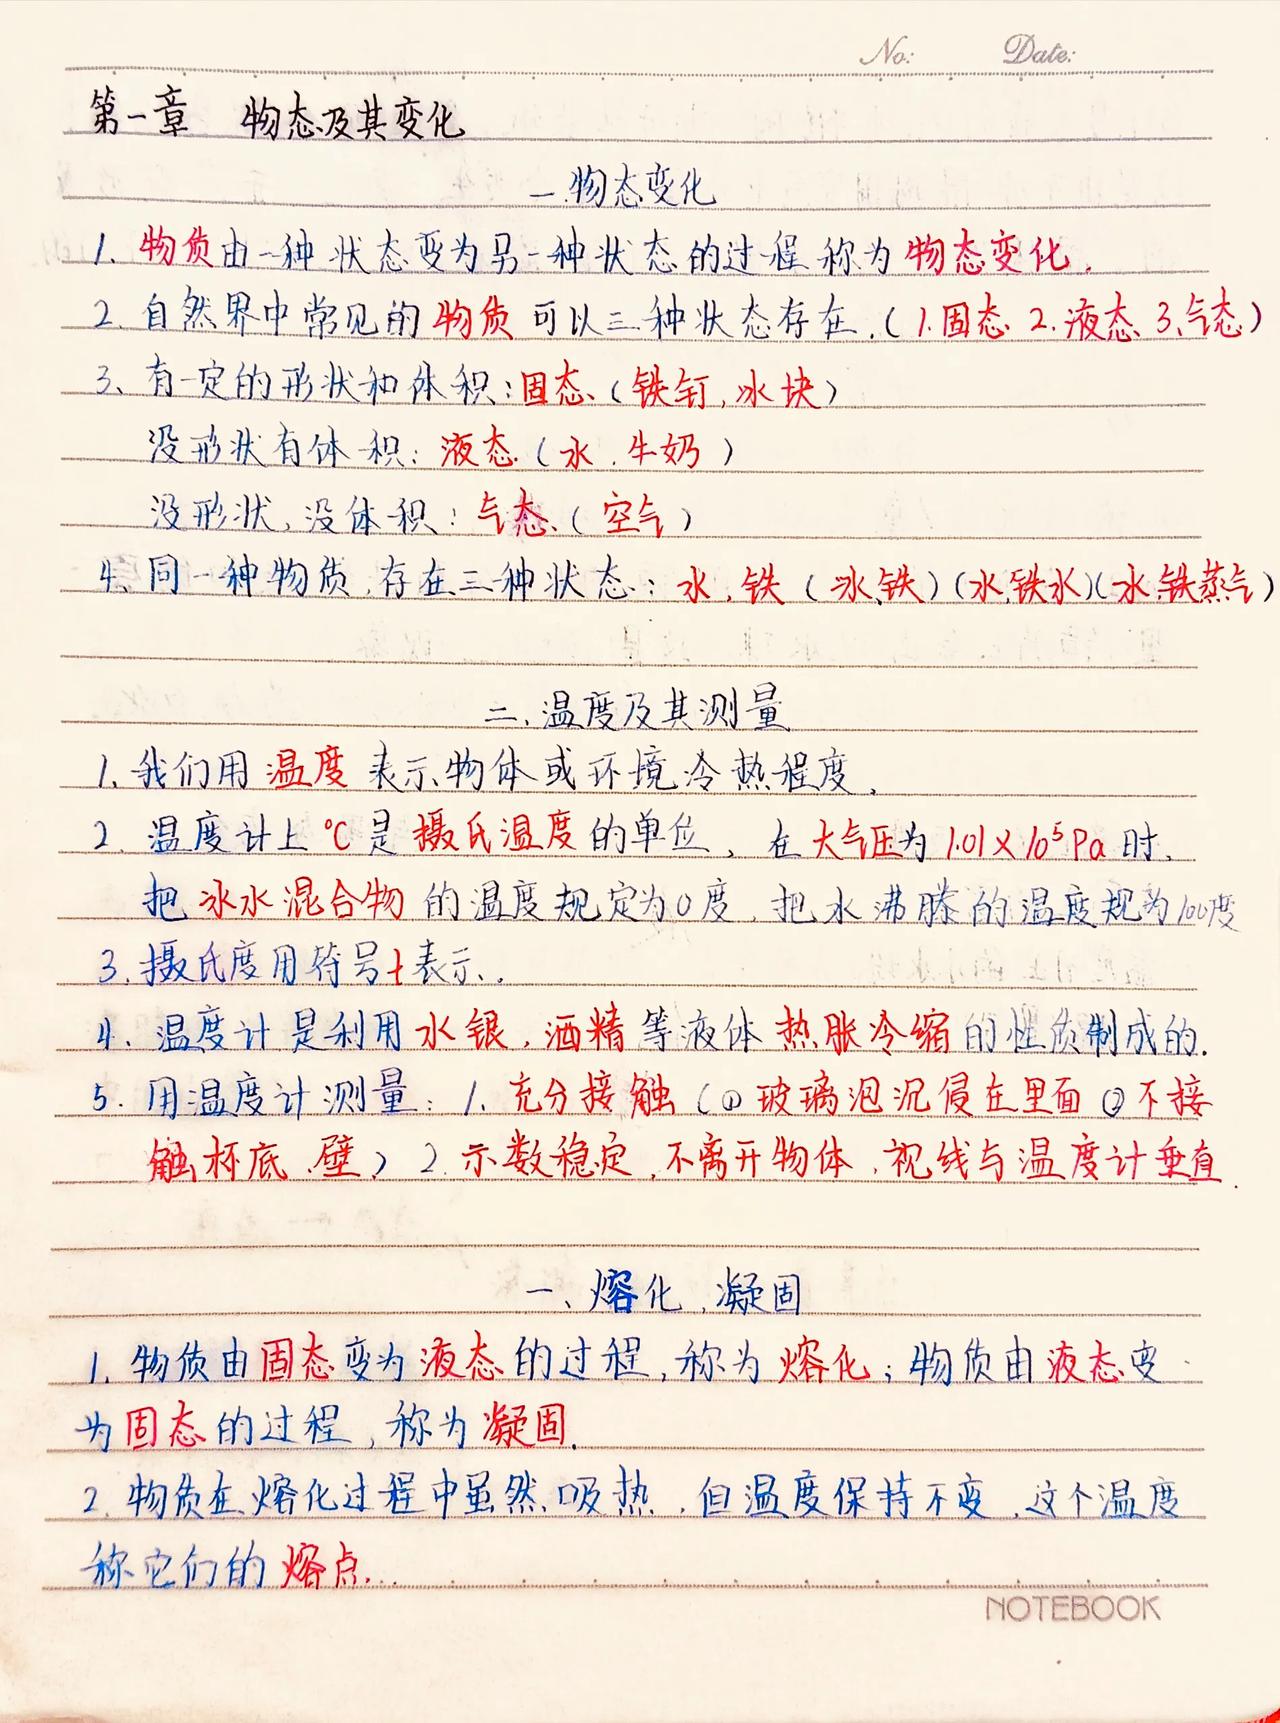 No: Date:
第一章 物态及其变化
一.物态变化
1. 物质由一种状态变为另一种状态的过程称为物态变化.
2. 自然界中常见的物质可以三种状态存在.(1.固态 2.液态 3.气态)
3、有一定的形状和体积:固态(铁钉,冰块)
没形状有体积:液态(水.牛奶)
没形状,没体积:气态(空气)
4、同一种物质,存在三种状态:水,铁(冰,铁)(水,铁水)(水,铁蒸气)
二、温度及其测量
1. 我们用温度表示物体或环境冷热程度.
2. 温度计上℃是摄氏温度的单位,在大气压为1.01×10⁵Pa时,
把冰水混合物的温度规定为0度,把水沸腾的温度规为100度
3. 摄氏度用符号t表示.
4. 温度计是利用水银,酒精等液体热胀冷缩的性质制成的.
5. 用温度计测量:1.充分接触(①玻璃泡沉侵在里面②不接
触杯底、壁)2.示数稳定,不离开物体,视线与温度计垂直.
一、熔化,凝固
1. 物质由固态变为液态的过程,称为熔化;物质由液态变
为固态的过程,称为凝固.
2. 物质在熔化过程中虽然吸热,但温度保持不变,这个温度
称它们的熔点.
NOTEBOOK